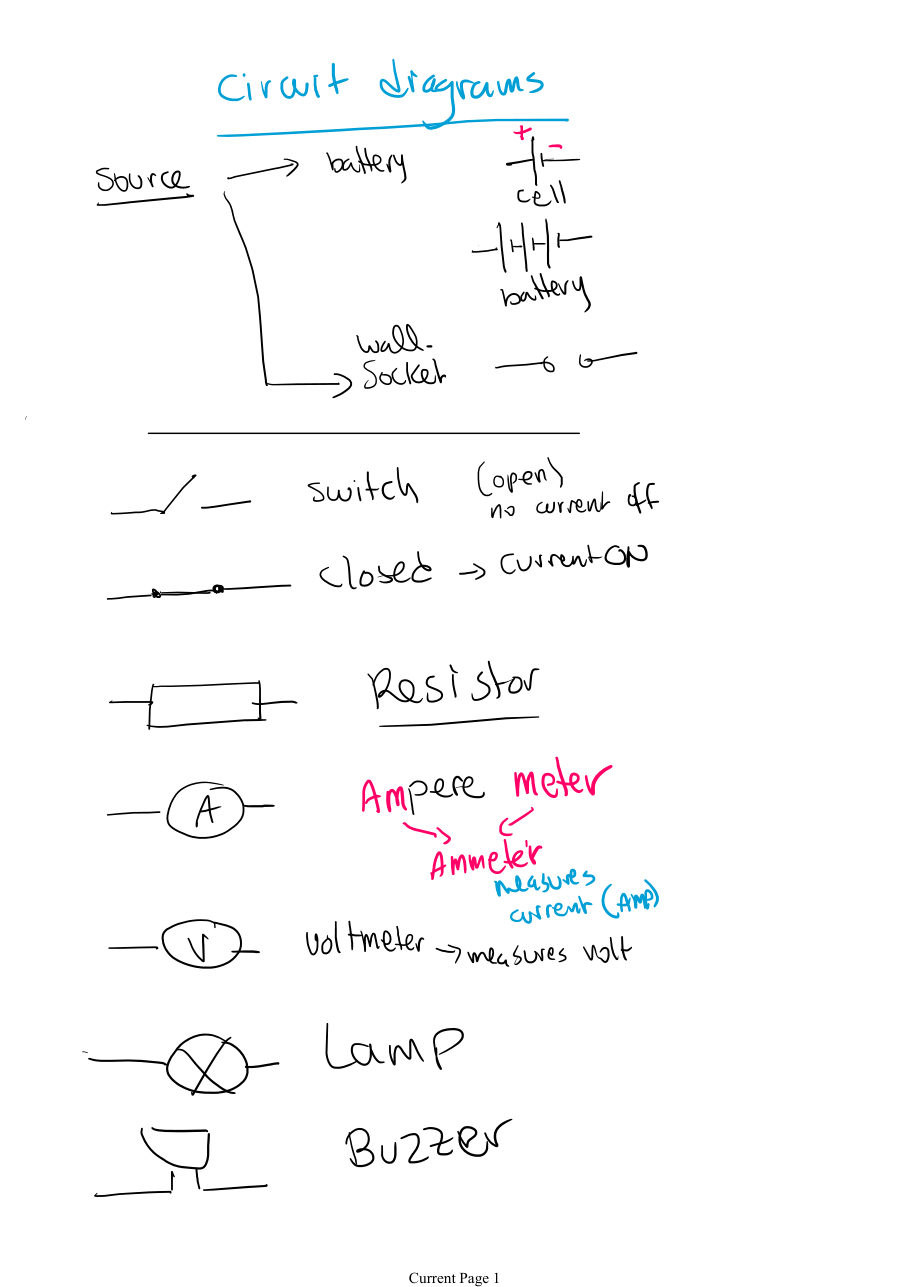 Circuit diagrams
Source
battery
+ -
cell
battery
wall-
Socket
switch (open)
no current off
closed → current ON
Resistor
A
Ampere meter
Ammeter
measures
current (Amp)
V
voltmeter → measures volt
Lamp
Buzzer
Current Page 1